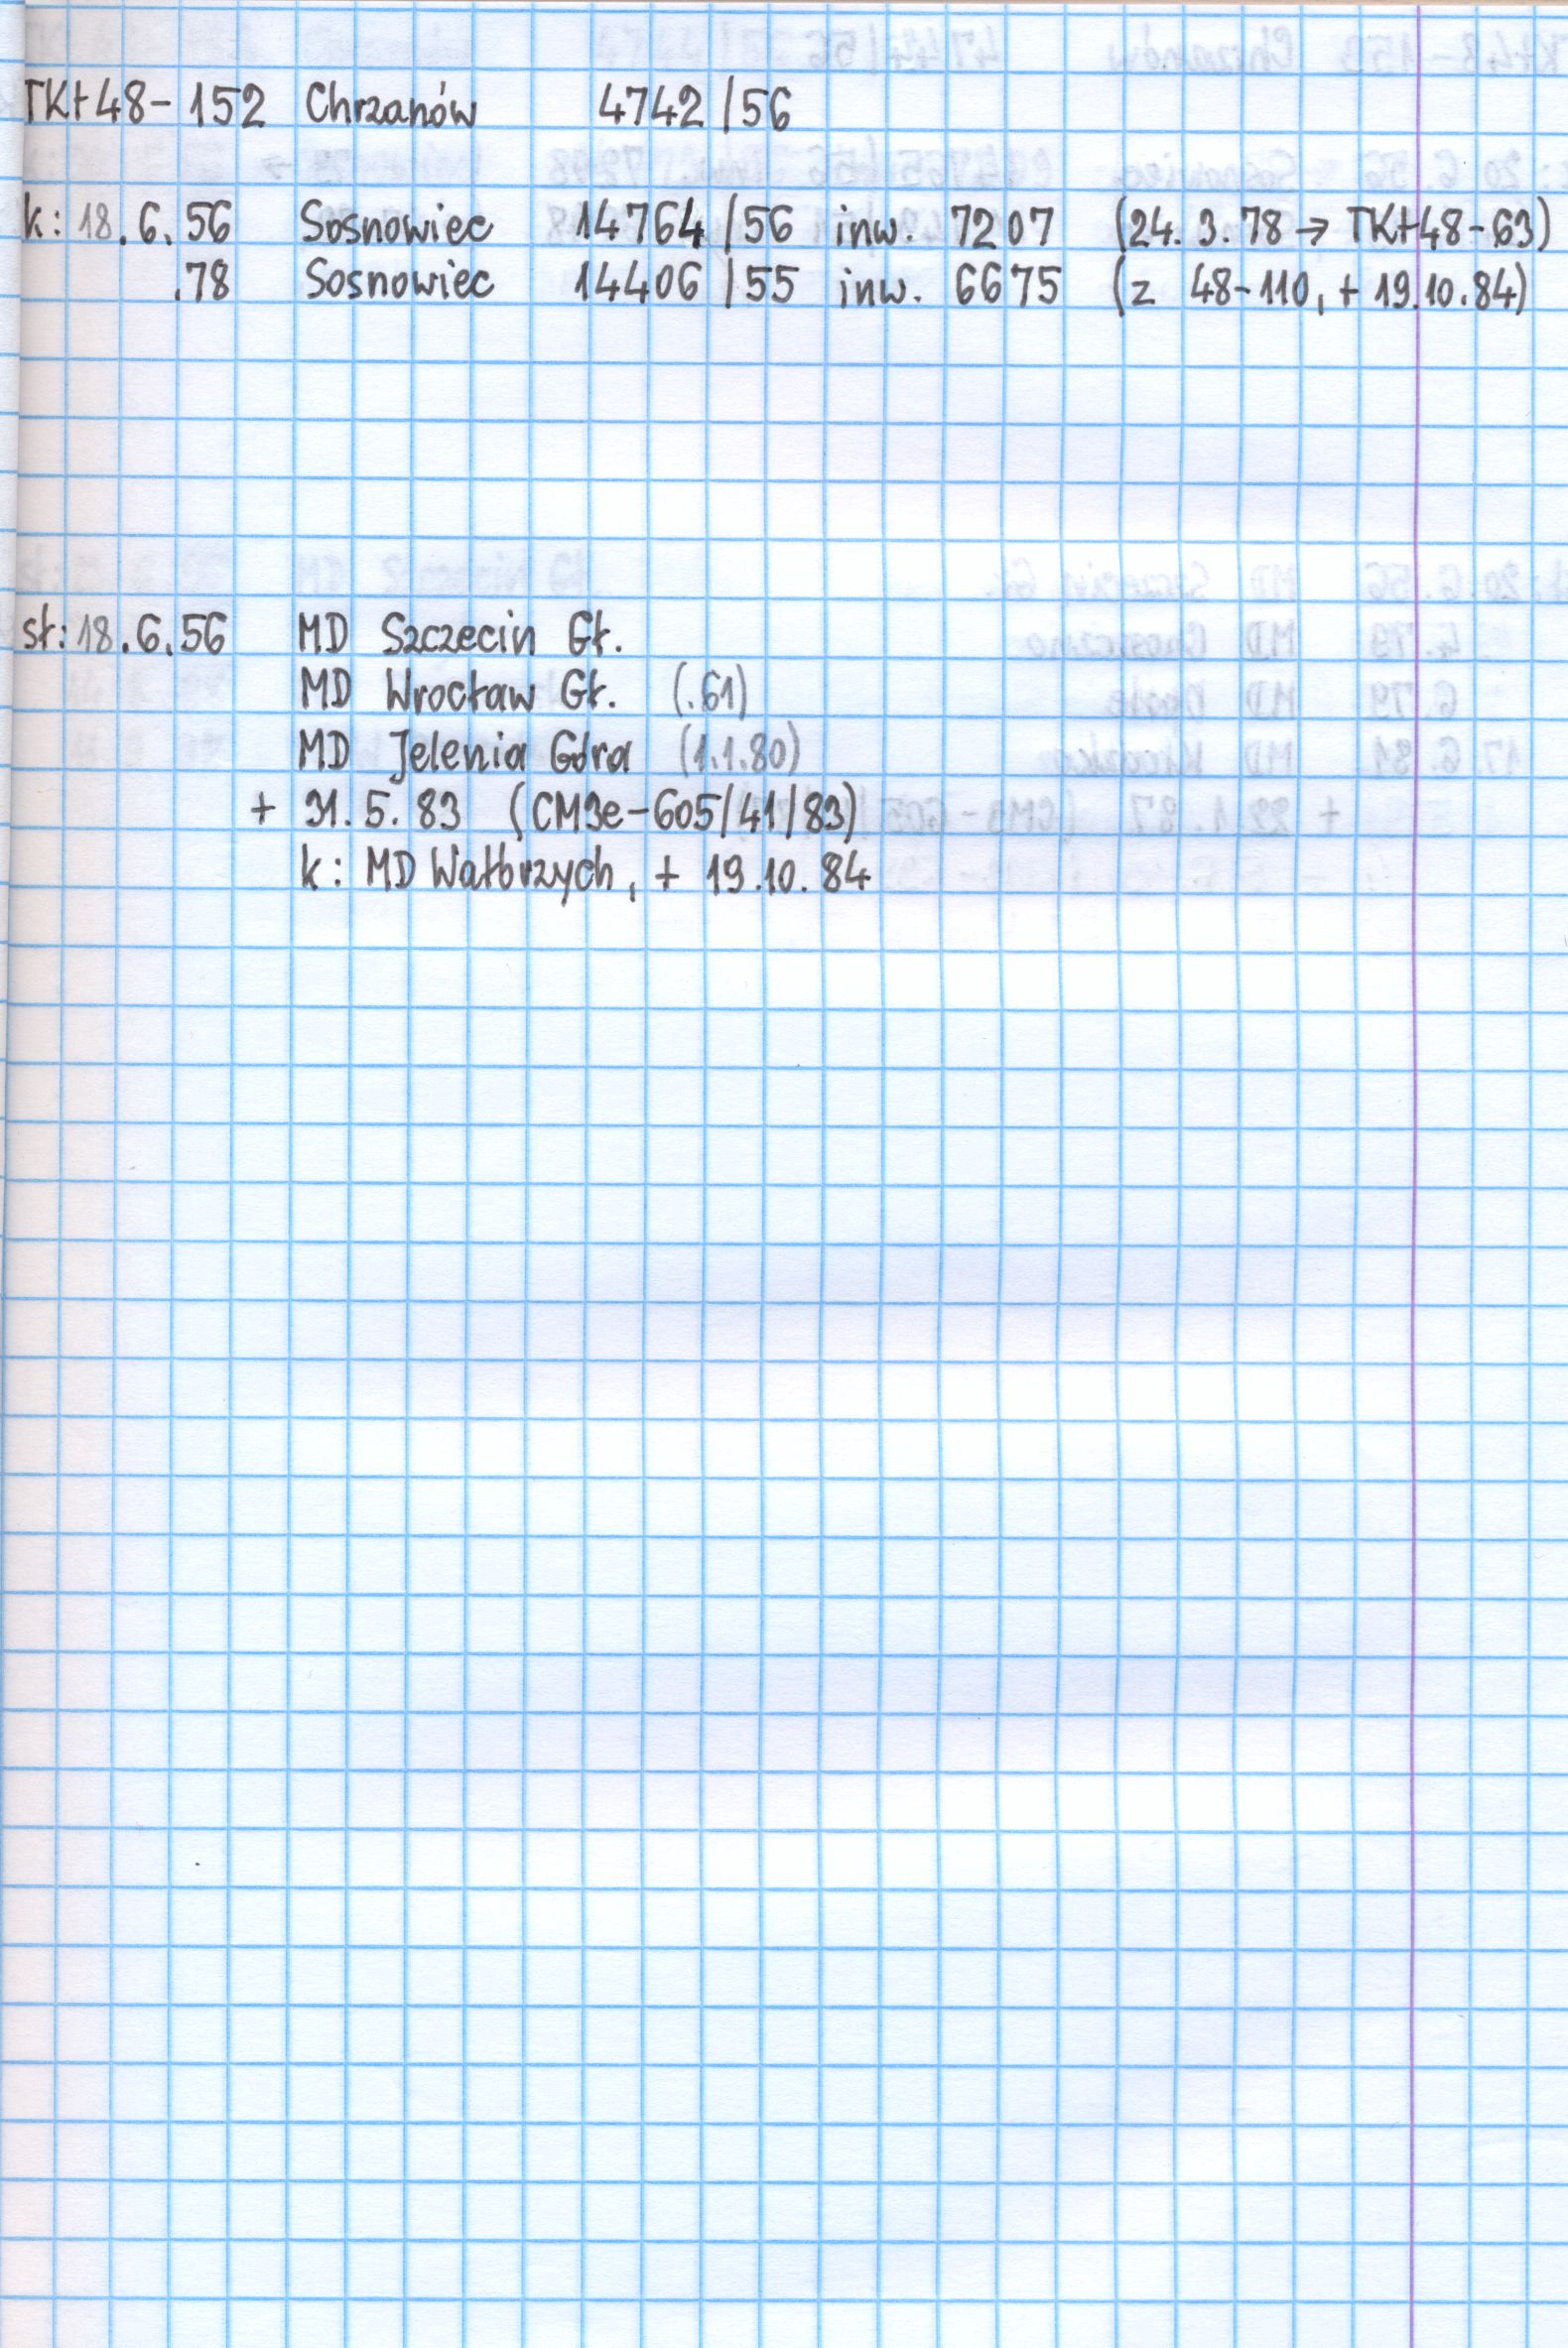 TKt48-152 Chrzanów 4742/56
k: 18.6.56 Sosnowiec 14764/56 inw. 7207 (24.3.78 → TKt48-63)
.78 Sosnowiec 14406/55 inw. 6675 (z 48-110, + 19.10.84)
st: 18.6.56 MD Szczecin Gł.
MD Wrocław Gł. (.61)
MD Jelenia Góra (1.1.80)
+ 31.5.83 (CM3e-605/41/83)
k: MD Wałbrzych, + 19.10.84